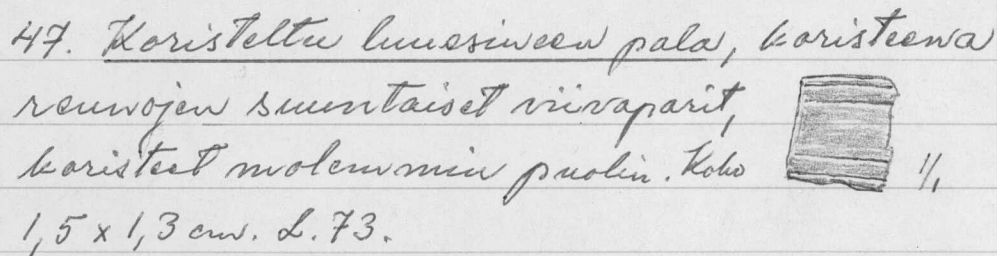 47. Koristeltu luuesineen pala, koristeena
reunojen suuntaiset viivaparit,
koristeet molemmin puolin. Koko 1/1
1,5 x 1,3 cm. L. 73.